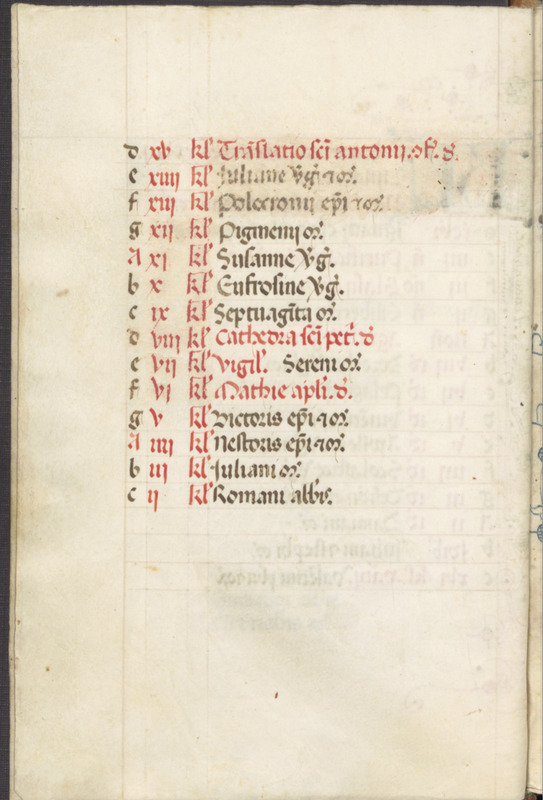 d xv kl' Trãslatio scĩ antonii. ↄf. d'.
e xiiii kl' Juliane v̾g̾ ⁊ oɾ̃.
f xiii kl' Policronii ep̃i ⁊ oɾ̃.
g xii kl' Pigmenii oɾ̃.
A xi kl' Susanne v̾g̾.
b x kl' Eufrosine v̾g̾.
c ix kl' Septuagĩta oɾ̃.
d viii kl' Cathedra scĩ pet̾. d'
e vii kl' Vigil'. Sereni oɾ̃
f vi kl' Mathie apl̃i. d'.
g v kl' Victoris ep̃i ⁊ oɾ̃.
A iiii kl' Nestoris ep̃i ⁊ oɾ̃.
b iii kl' Juliani oɾ̃
c ii kl' Romani abb̃is.